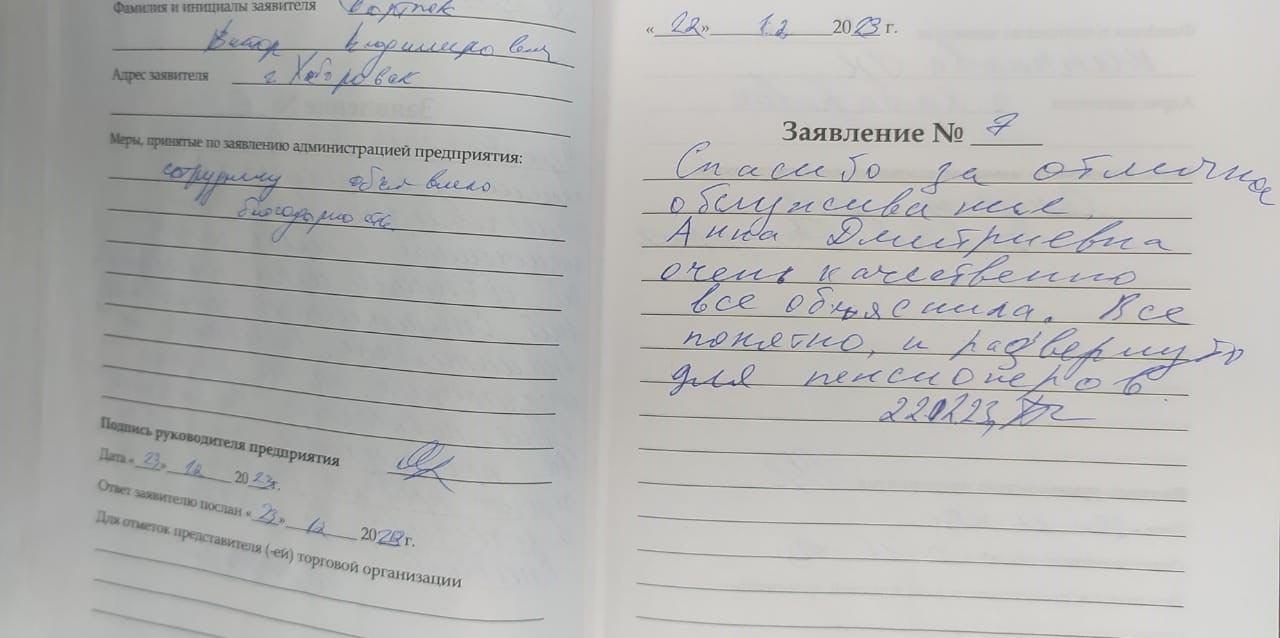 Фамилия и инициалы заявителя
Виктор Владимирович
Адрес заявителя г. Хабаровск
Меры, принятые по заявлению администрацией предприятия:
сотруднику объявлено
благодарность
Подпись руководителя предприятия
Дата «23» 12 2023г.
Ответ заявителю послан «23» 12 2023 г.
Для отметок представителя (-ей) торговой организации
«22» 12 2023 г.
Заявление № 7
Спасибо за отличное
обслуживание.
Анна Дмитриевна
очень качественно
все объяснила. Все
понятно, и развернуто
для пенсионеров.
221223